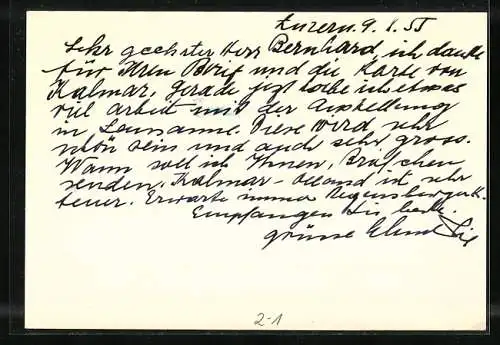 Luzern 9.1.55
Sehr geehrter Herr Bernhard ich danke
für Ihren Brief und die Karte von
Kalmar. Gerade jezt habe ich etwas
viel arbeit mit der
in Lausanne. Diese wird sehr
schön sein und auch sehr gross.
Wann soll ich Ihnen,
senden. Kalmar - Oeland ist sehr
teuer. Erwarte immer
Empfangen Sie beste
grüsse
2-1